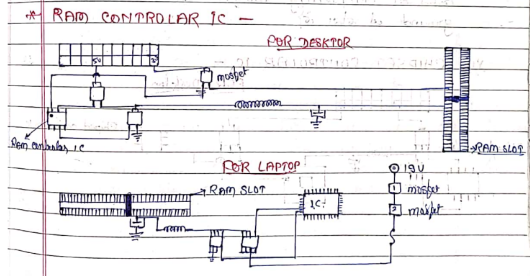 * RAM CONTROLAR IC -
FOR DESKTOP
5V
mosfet
RAM Controlar IC
RAM SLOT
FOR LAPTOP
19V
RAM SLOT
mosfet
IC
mosfet